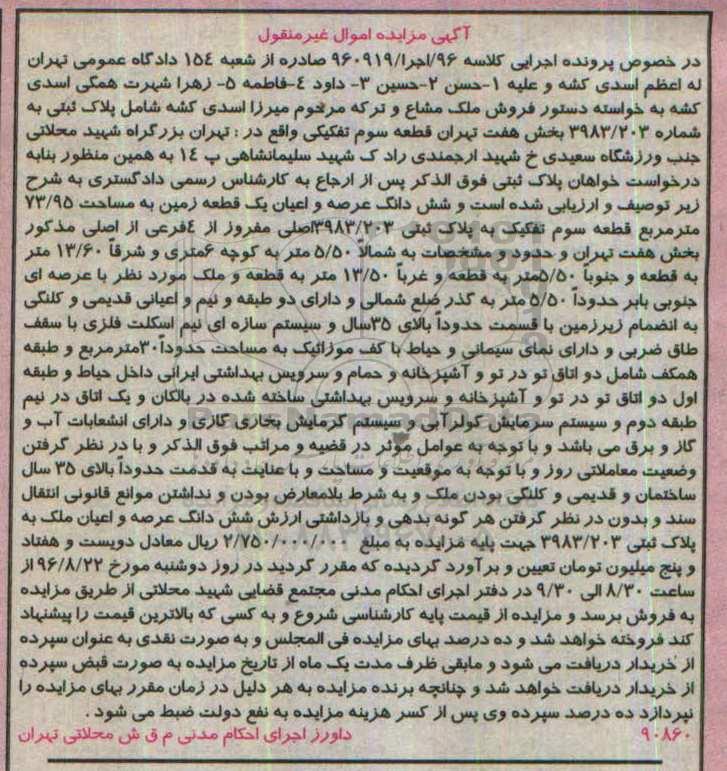 آگهی مزایده اموال غیرمنقول
در خصوص پرونده اجرایی کلاسه ۹۶/اجرا/۹۶۰۹۱۹ صادره از شعبه ۱۵۴ دادگاه عمومی تهران
له اعظم اسدی کشه و علیه ۱-حسن ۲-حسین ۳- داود ٤-فاطمه ۵- زهرا شهرت همگی اسدی
کشه به خواسته دستور فروش ملک مشاع و ترکه مرحوم میرزا اسدی کشه شامل پلاک ثبتی به
شماره ۳۹۸۳/۲۰۳ بخش هفت تهران قطعه سوم تفکیکی واقع در : تهران بزرگراه شهید محلاتی
جنب ورزشگاه سعیدی خ شهید ارجمندی راد ک شهید سلیمانشاهی پ ۱٤ به همین منظور بنابه
درخواست خواهان پلاک ثبتی فوق الذکر پس از ارجاع به کارشناس رسمی دادگستری به شرح
زیر توصیف و ارزیابی شده است و شش دانگ عرصه و اعیان یک قطعه زمین به مساحت ۷۳/۹۵
مترمربع قطعه سوم تفکیک به پلاک ثبتی ۳۹۸۳/۲۰۳اصلی مفروز از ٤فرعی از اصلی مذکور
بخش هفت تهران و حدود و مشخصات به شمالاً ۵/۵۰ متر به کوچه ۶متری و شرقاً ۱۳/۶۰ متر
به قطعه و جنوباً ۵/۵۰متر به قطعه و غرباً ۱۳/۵۰ متر به قطعه و ملک مورد نظر با عرصه ای
جنوبی بابر حدوداً ۵/۵۰ متر به گذر ضلع شمالی و دارای دو طبقه و نیم و اعیانی قدیمی و کلنگی
به انضمام زیرزمین با قسمت حدوداً بالای ۳۵سال و سیستم سازه ای نیم اسکلت فلزی با سقف
طاق ضربی و دارای نمای سیمانی و حیاط با کف موزائیک به مساحت حدوداً۳۰مترمربع و طبقه
همکف شامل دو اتاق تو در تو و آشپزخانه و حمام و سرویس بهداشتی ایرانی داخل حیاط و طبقه
اول دو اتاق تو در تو و آشپزخانه و سرویس بهداشتی ساخته شده در بالکان و یک اتاق در نیم
طبقه دوم و سیستم سرمایش کولرآبی و سیستم گرمایش بخاری گازی و دارای انشعابات آب و
گاز و برق می باشد و با توجه به عوامل موثر در قضیه و مراتب فوق الذکر و با در نظر گرفتن
وضعیت معاملاتی روز و با توجه به موقعیت و مساحت و با عنایت به قدمت حدوداً بالای ۳۵ سال
ساختمان و قدیمی و کلنگی بودن ملک و به شرط بلامعارض بودن و نداشتن موانع قانونی انتقال
سند و بدون در نظر گرفتن هر گونه بدهی و بازداشتی ارزش شش دانگ عرصه و اعیان ملک به
پلاک ثبتی ۳۹۸۳/۲۰۳ جهت پایه مزایده به مبلغ ۲/۷۵۰/۰۰۰/۰۰۰ ریال معادل دویست و هفتاد
و پنج میلیون تومان تعیین و برآورد گردیده که مقرر گردید در روز دوشنبه مورخ ۹۶/۸/۲۲ از
ساعت ۸/۳۰ الی ۹/۳۰ در دفتر اجرای احکام مدنی مجتمع قضایی شهید محلاتی از طریق مزایده
به فروش برسد و مزایده از قیمت پایه کارشناسی شروع و به کسی که بالاترین قیمت را پیشنهاد
کند فروخته خواهد شد و ده درصد بهای مزایده فی المجلس و به صورت نقدی به عنوان سپرده
از خریدار دریافت می شود و مابقی ظرف مدت یک ماه از تاریخ مزایده به صورت قبض سپرده
از خریدار دریافت خواهد شد و چنانچه برنده مزایده به هر دلیل در زمان مقرر بهای مزایده را
نپردازد ده درصد سپرده وی پس از کسر هزینه مزایده به نفع دولت ضبط می شود .
۹۰۸۶۰ داورز اجرای احکام مدنی م ق ش محلاتی تهران
ParsNamadData